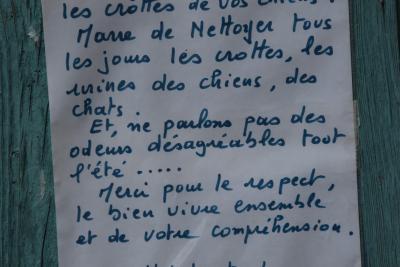 les crottes de vos chiens.
Marre de Nettoyer tous
les jours les crottes, les
urines des chiens, des
chats.
Et, ne parlons pas des
odeurs désagréables tout
l'été .....
Merci pour le respect,
le bien vivre ensemble
et de votre compréhension.